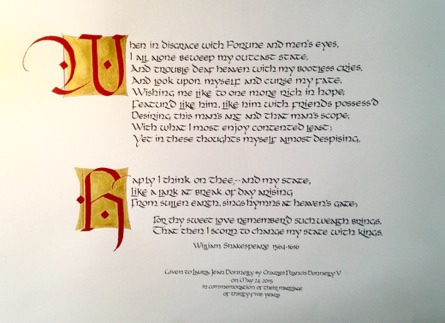 When in disgrace with Fortune and men's eyes,
I all alone beweep my outcast state,
And trouble deaf heaven with my bootless cries,
And look upon myself and curse my fate,
Wishing me like to one more rich in hope,
Featur'd like him, like him with friends possess'd
Desiring this man's art and that man's scope,
With what I most enjoy contented least;
Yet in these thoughts myself almost despising,
Haply I think on thee,--and my state,
Like a lark at break of day arising
From sullen earth, sings hymns at heaven's gate;
For thy sweet love remember'd such wealth brings,
That then I scorn to change my state with kings.
William Shakespeare 1564-1616
Given to Laura Jean Donnelly by Charles Francis Donnelly V
on May 24, 2015
in commemoration of their marriage
of thirty-five years